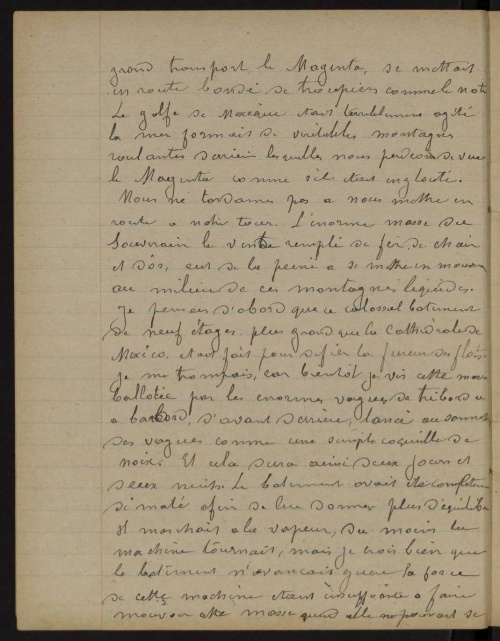 grand transport, le Magenta, se mettait
en route bondé de troupiers comme le notre
Le golfe de Mexique etait terriblement agité
la mer formait de veritables montagnes
roulantes derriere lesquelles nous perdions de vue
le Magenta comme s'il etait englouti.
Nous ne tardames pas a nous mettre en
route a notre tour. L'enorme masse du
Souverain le ventre rempli de fer, de chair
et d'os, eut de la peine a se mettre en mouvem
au milieu de ces montagnes liquides.
Je pensais d'abord que ce colossal batiment
de neuf étages plus grand que la Cathedrale de
Mexico, etait fait pour defier la fureur des flots
Je me trompais, car bientôt je vis cette masse
ballotée par les enormes vagues de tribord
a babord, d'avant derriere, lancé au sommet
des vagues comme une simple coquille de
noix. Et cela dura ainsi deux jours et
deux nuits. Le batiment avait été completeme
dématé afin de lui donner plus d'équilibre
Il marchait a la vapeur, du moins la
machine tournait, mais je crois bien que
le batiment n'avancait guere la force
de cette machine etant insuffisante a faire
mouvoir cette masse quand elle ne pouvait se